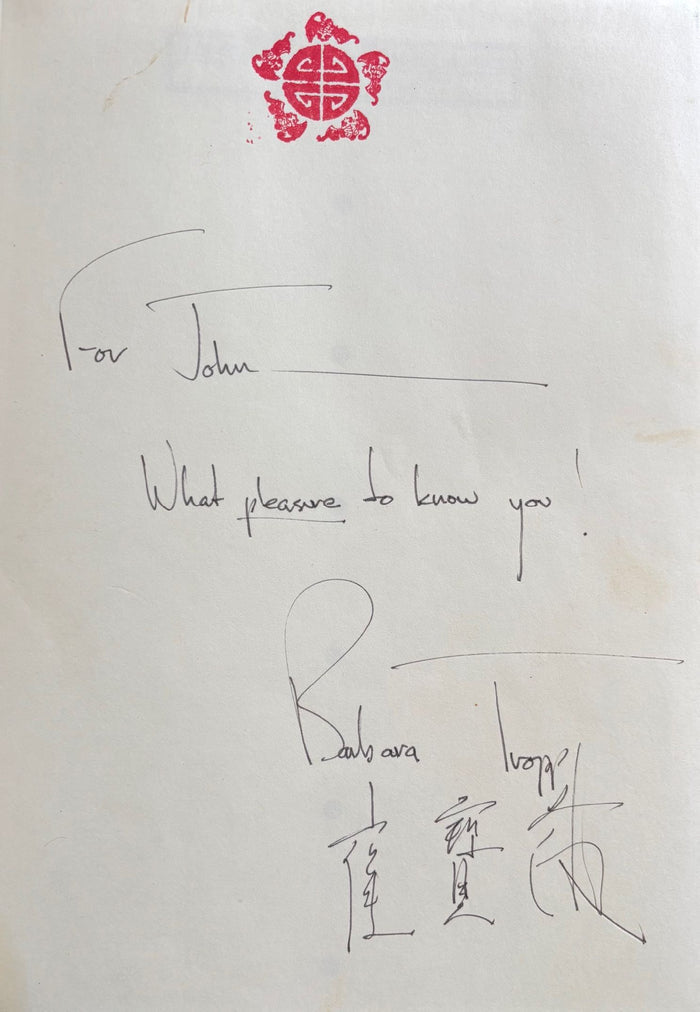 For John
What pleasure to know you!
Barbara Tropp
崔寶